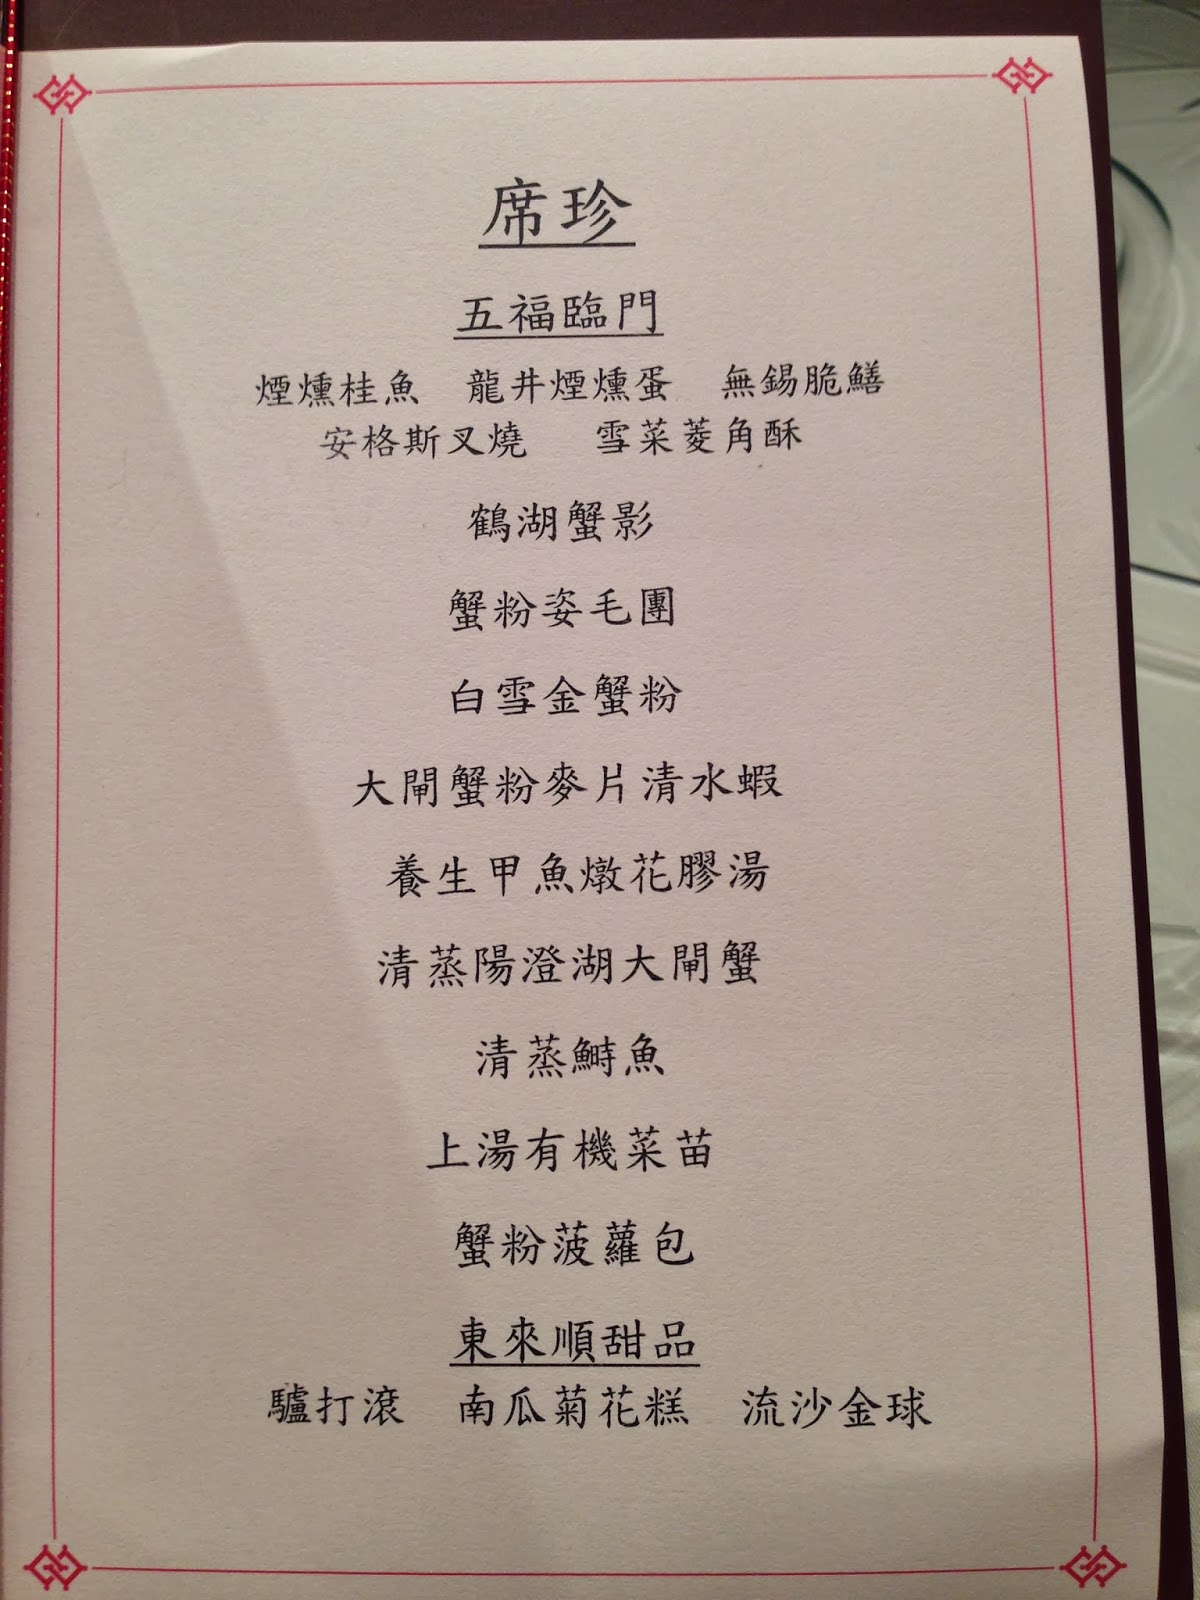 席珍
五福臨門
煙燻桂魚 龍井煙燻蛋 無錫脆鱔
安格斯叉燒 雪菜菱角酥
鶴湖蟹影
蟹粉姿毛團
白雪金蟹粉
大閘蟹粉麥片清水蝦
養生甲魚燉花膠湯
清蒸陽澄湖大閘蟹
清蒸鰣魚
上湯有機菜苗
蟹粉菠蘿包
東來順甜品
驢打滾 南瓜菊花糕 流沙金球